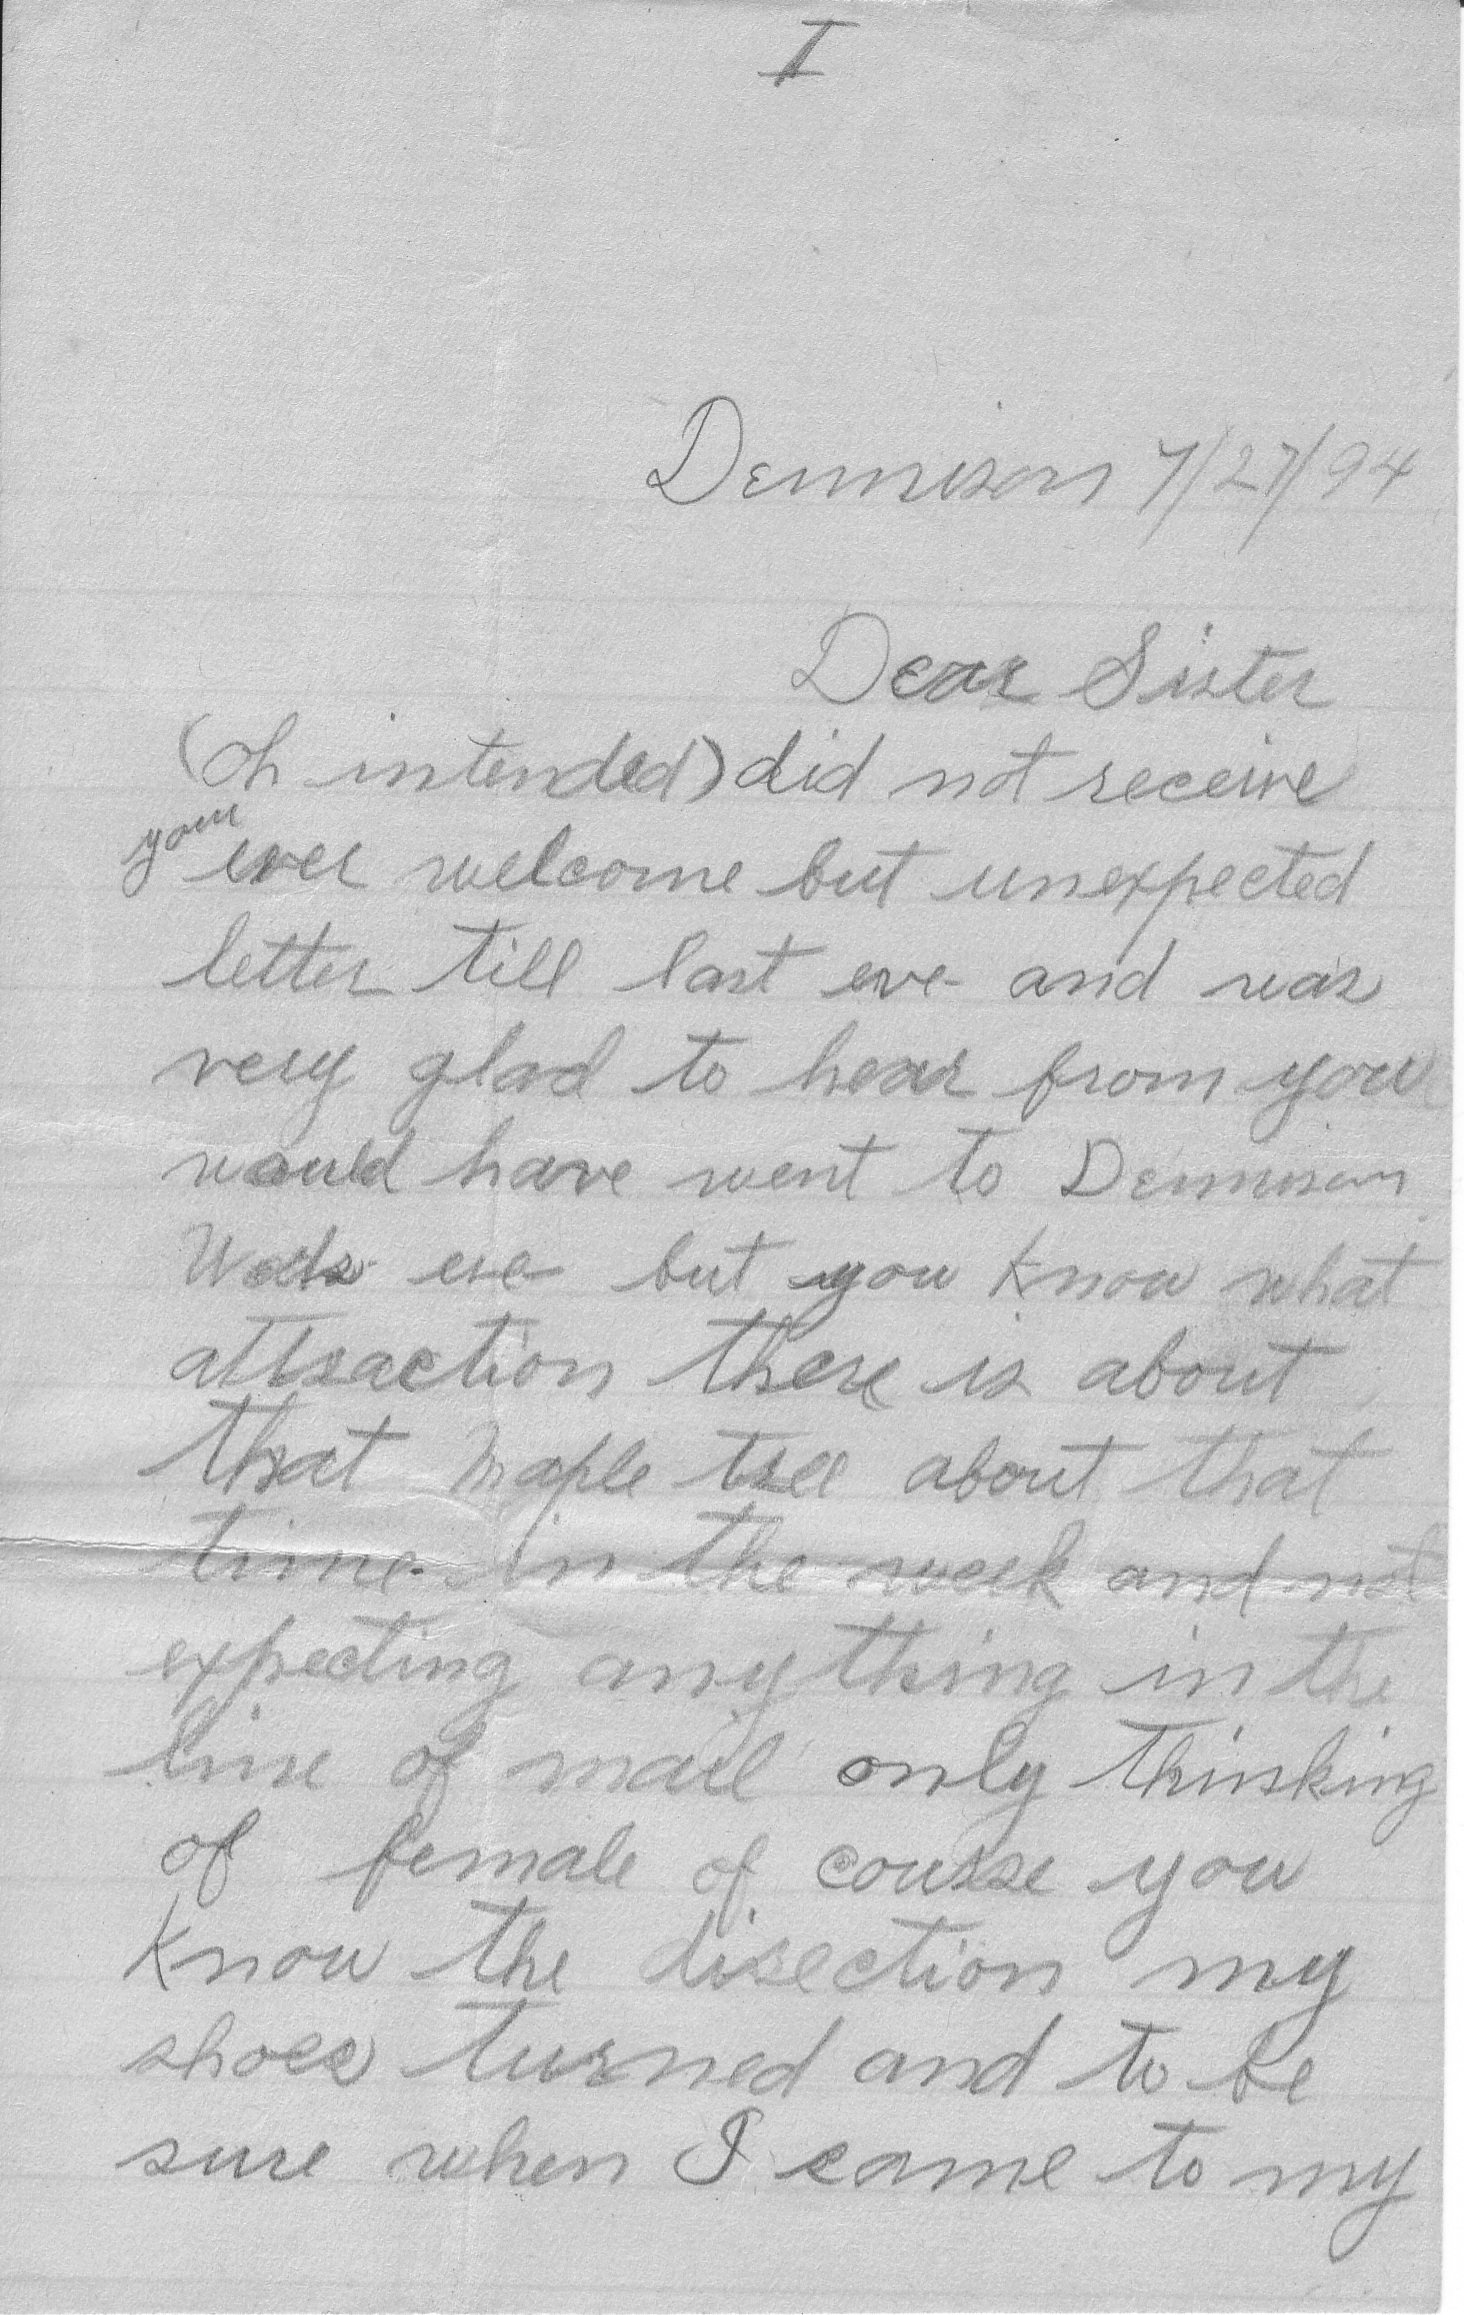 I
Dennison 7/27/94
Dear Sister
(oh intended) did not receive
your ever welcome but unexpected
letter till last eve and was
very glad to hear from you
would have went to Dennison
eve but you know what
attraction there is about
that maple tree about that
time in the week and not
expecting anything in the
line of mail only thinking
of female of course you
know the direction my
shoes turned and to be
sure when I came to my